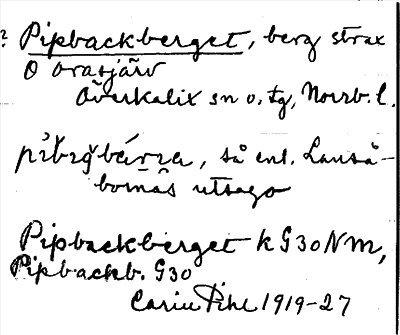 ? Pipbackberget, berg strax
O Orasjärv
Överkalix sn o. tg, Norrb. l.
så enl. Lanså-
bornas utsago
Pipbackberget k G30 NM,
Pipbackb. G30
Carin Pihl 1919-27